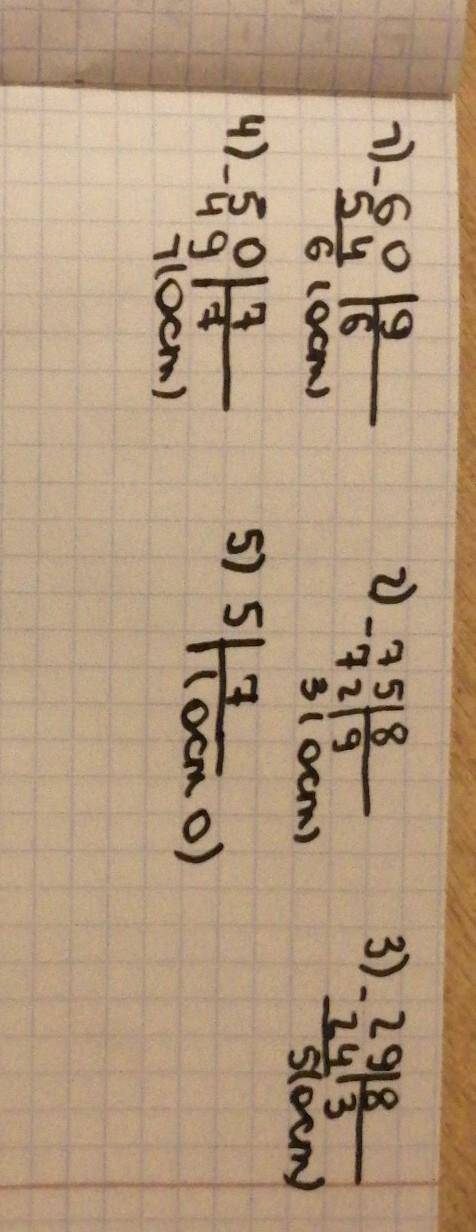 1) -60|9 2) -75|8 3) -29|8
54|6 72|9 24|3
6 (ост) 3 (ост) 5(ост)
4) -50|7 5) 5|7
49|7 (ост 0)
1(ост)